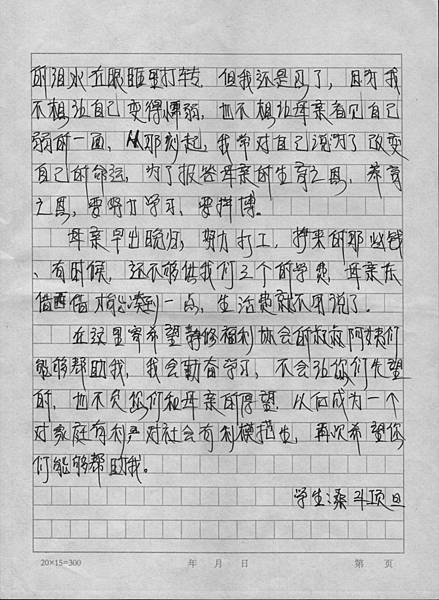 的泪水在眼眶里打转，但我还是忍了，因为我
不想让自己变得懦弱，也不想让母亲看见自己
弱的一面，从那刻起，我常对自己说为了改变
自己的命运，为了报答母亲的生育之恩，养育
之恩，要努力学习，要拼博。
母亲早出晚归，努力打工，挣来的那些钱
、有时候，还不够供我们三个的学费，母亲东
借西借才凑到一点，生活费就不用说了。
在这里寄希望静修福利协会的叔叔阿姨们
能够帮助我，我会勤奋学习，不会让你们失望
的，也不负您们和母亲的厚望，以后成为一个
对家庭有利对社会有利模范生，再次希望你
们能够帮助我。
学生：桑斗项旦
20×15=300 年 月 日 第 页